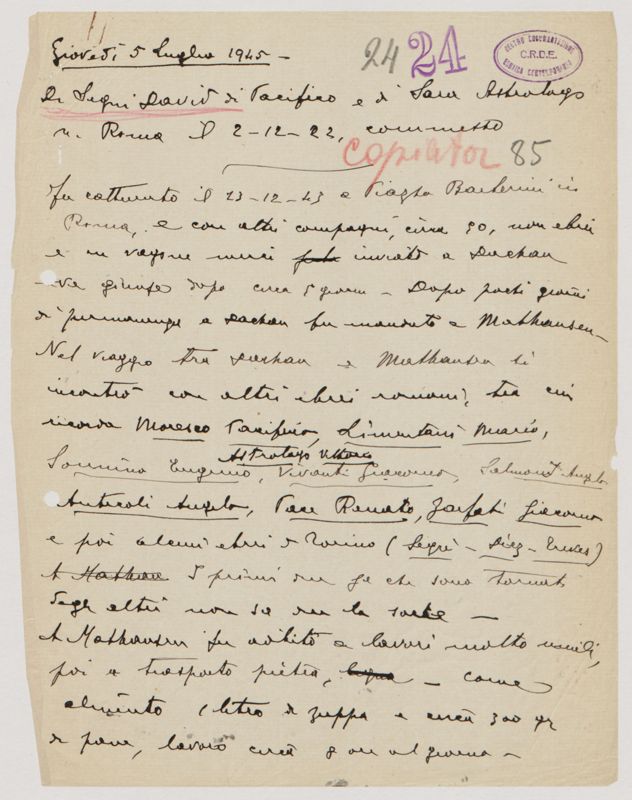 Giovedì 5 Luglio 1945 -
24 24
CENTRO DOCUMENTAZIONE
C.R.D.E.
EBRAICA CONTEMPORANEA
Di Segni David di Pacifico e di Sara Astrologo
n. Roma il 2-12-22, commesso
copiato 85
Fu catturato il 23-12-43 a Piazza Barberini in
Roma, e con altri compagni, circa 50, non ebrei
e in vagone merci inviato a Dachau
giunse dopo circa 5 giorni - Dopo pochi giorni
di permanenza a Dachau fu mandato a Mathausen -
Nel viaggio tra Dachau e Mathausen si
incontrò con altri ebrei romani, tra cui
ricorda Moresco Pacifico, Limentani Mario,
Astrologo Vittorio
Sonnino Eugenio, Vivanti Giacomo, Salmonì Angelo
Anticoli Angelo, Pace Renato, Zarfati Giacomo
e poi alcuni ebrei di Torino (Segrè - Diaz -
A Mathau I primi due che sono tornati
Degli altri non sa la sorte -
A Mathausen fu adibito a lavori molto umili,
poi a trasporto pietra, - come
alimento 1 litro di zuppa e circa 300 gr
di pane, lavoro circa 8 ore al giorno -